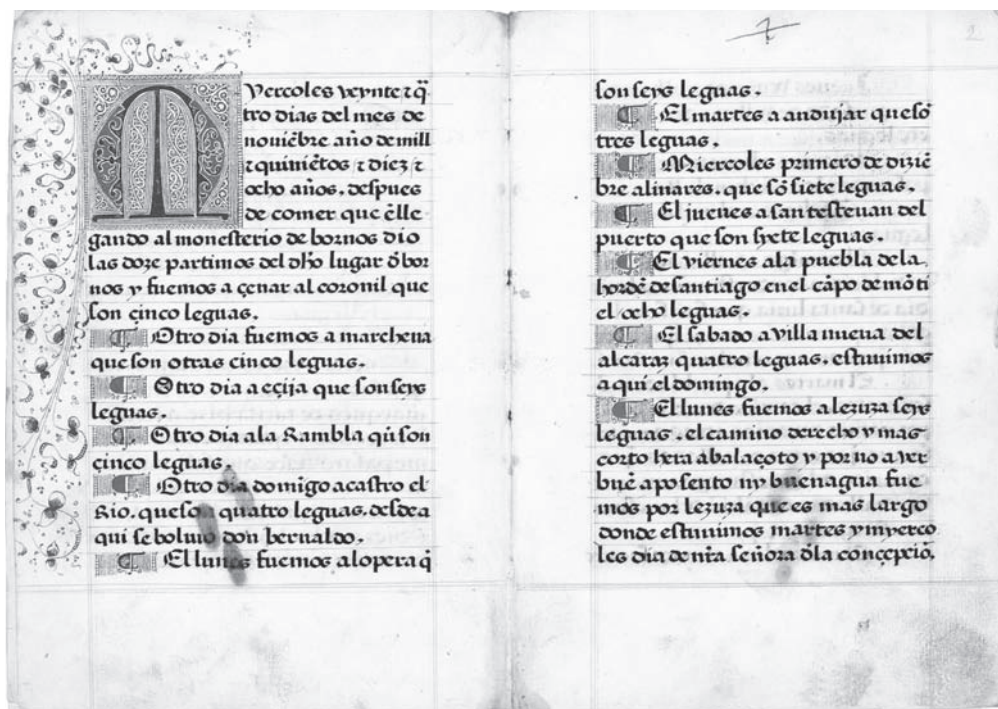 Myercoles veynte ⁊ q̃
tro dias del mes de
noviẽbre año de mill
⁊ quiniẽtos ⁊ diez ⁊
ocho años. despues
de comer que ẽ lle
gando al monesterio de bornos dio
las doze partimos del dħo lugar ð bor
nos y fuemos a çenar al coronil que
son çinco leguas.
¶ Otro dia fuemos a marchena
que son otras cinco leguas.
¶ Otro dia a eçija que son seys
leguas.
¶ Otro dia ala Rambla qũ son
çinco leguas.
¶ Otro dia domĩgo a castro el
Rio. que son quatro leguas. desde a
qui se boluio don bernaldo.
¶ El lunes fuemos a lopera q̃
7
2
son seys leguas.
¶ El martes a andujar que sõ
tres leguas.
¶ Miercoles primero de diziẽ
bre a linares. que sõ siete leguas.
¶ El jueues a santesteuan del
puerto que son syete leguas.
¶ El viernes ala puebla dela
hordẽ de santiago en el cãpo de mõti
el ocho leguas.
¶ El sabado a villa nueua del
alcaraz quatro leguas. estuuimos
a qui el domingo.
¶ El lunes fuemos a lezuza seys
leguas. el camino derecho y mas
corto hera a balaçoto y por no a ver
buẽ aposento ny buen agua fue
mos por lezuza que es mas largo
donde estuuimos martes y myerco
les dia de nr̃a señora ðla conçepciõ.